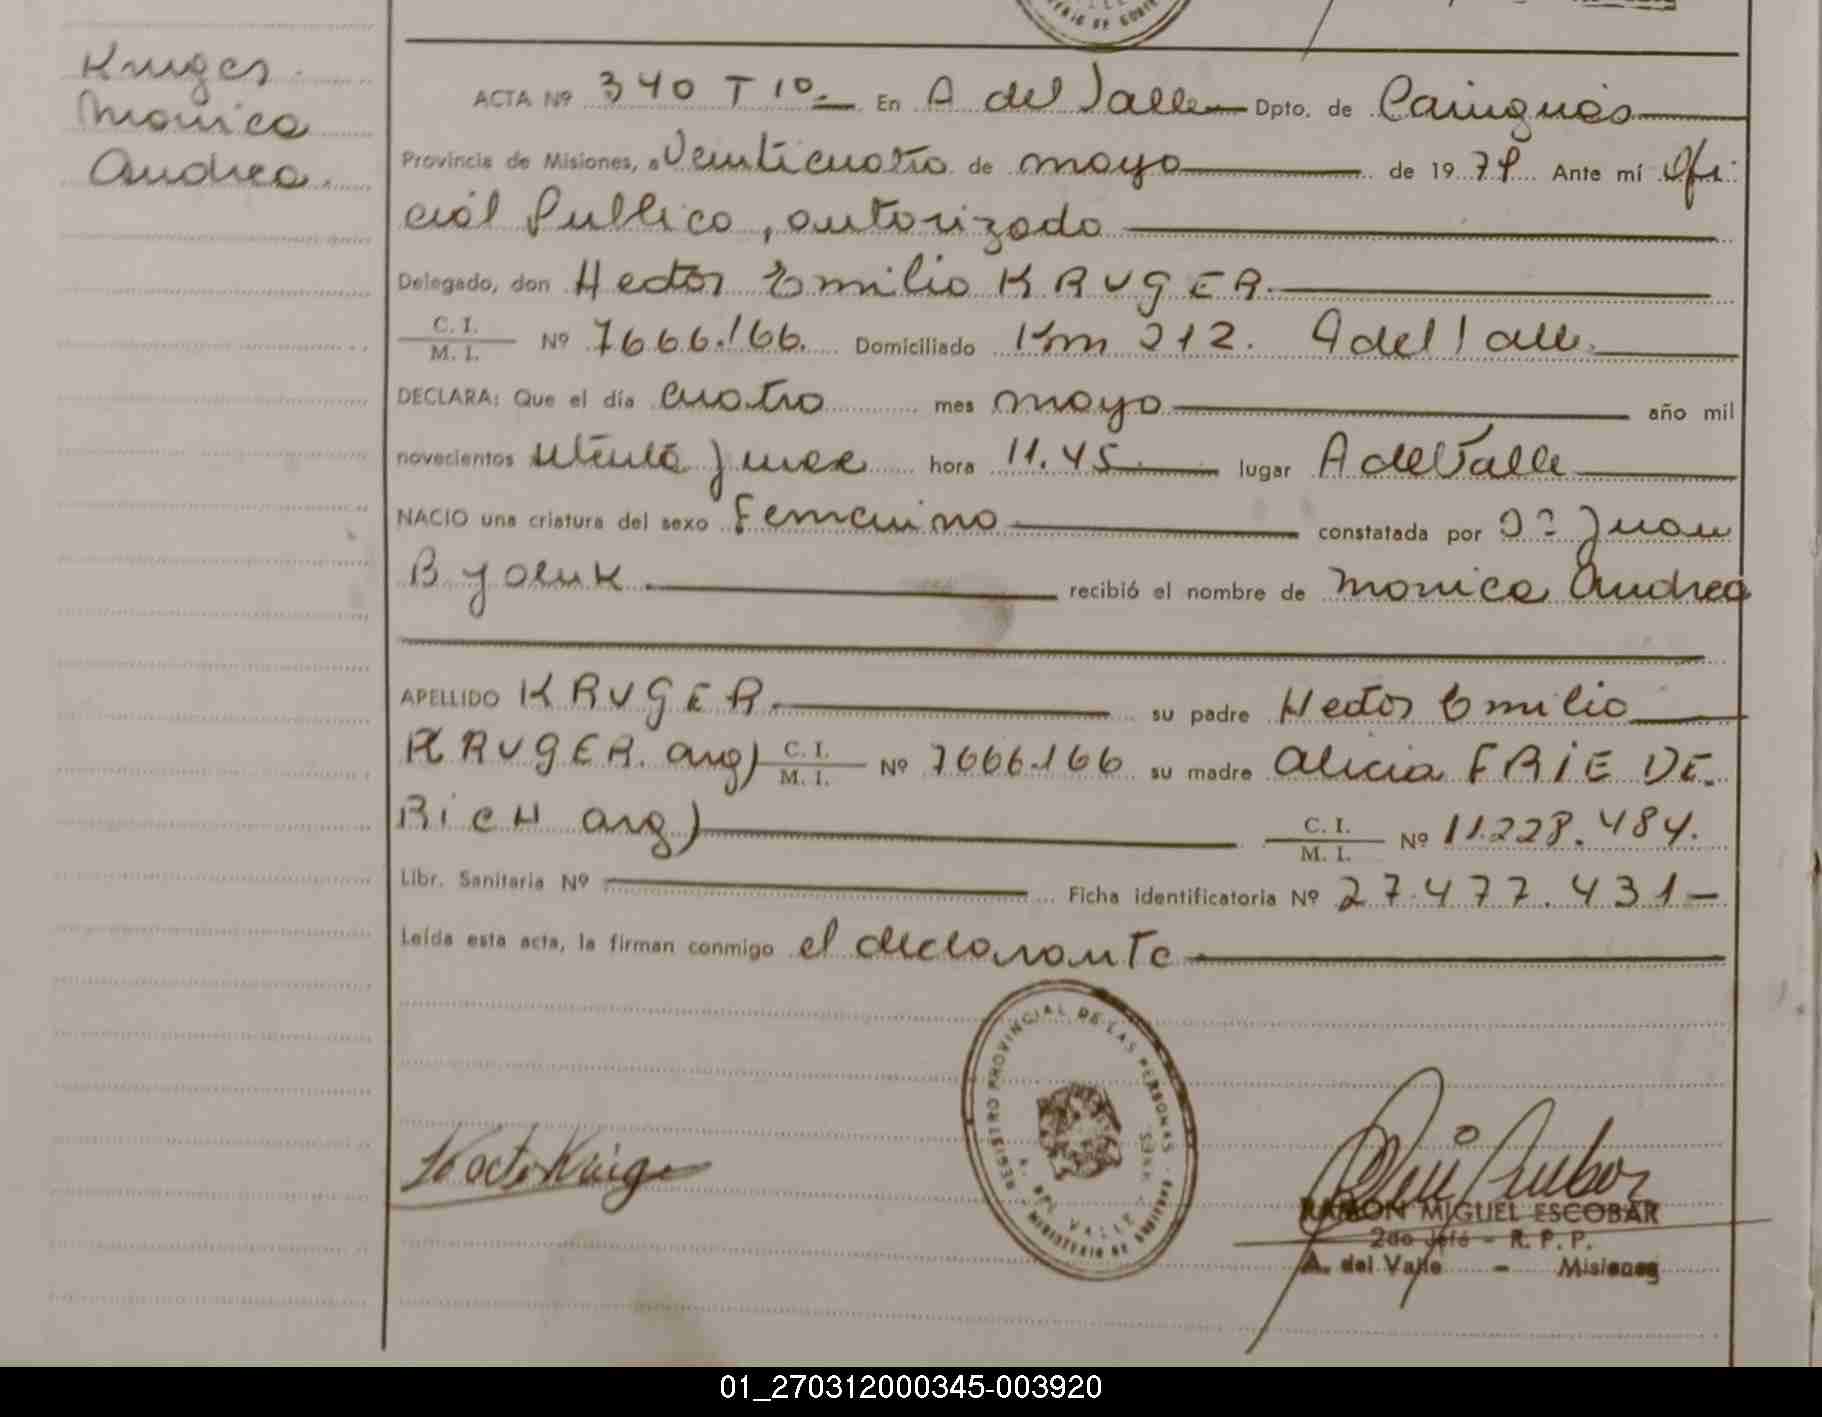 Kruger
Monica
Andrea.
ACTA Nº 340 T 1º.- En A del Valle Dpto. de Cainguás
Provincia de Misiones, a Veinticuatro de mayo de 1979 Ante mí Ofi-
cial Publico, autorizado
Delegado, don Hector Emilio KRUGER.
C. I.
M. I. Nº 7666.166. Domiciliado Km 212. A del Valle.
DECLARA: Que el día cuatro mes mayo año mil
novecientos setenta y nueve hora 11.45 lugar A del Valle
NACIO una criatura del sexo Femenino constatada por Dr Juan
recibió el nombre de Monica Andrea
APELLIDO KRUGER. su padre Hector Emilio
KRUGER. arg) C. I.
M. I. Nº 7666.166 su madre Alicia FRIE DE-
RICH arg) C. I.
M. I. Nº 11.228.484.
Libr. Sanitaria Nº Ficha identificatoria Nº 27.477.431-
Leída esta acta, la firman conmigo el declarante
REGISTRO PROVINCIAL DE LAS PERSONAS
A. DEL VALLE
MINISTERIO DE GOBIERNO
RAMON MIGUEL ESCOBAR
2do Jefe - R. P. P.
A. del Valle - Misiones
01_270312000345-003920